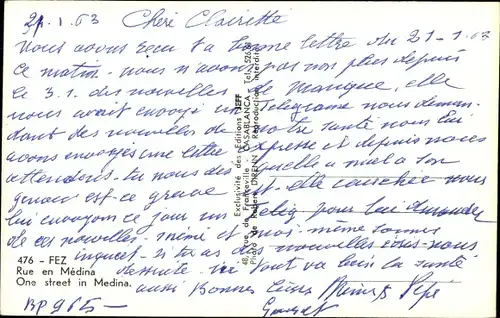 21.1.63 Chère Clairette
Nous avons reçu ta bonne lettre du 21-1-63
ce matin. nous n'avons pas non plus depuis
le 3.1. des nouvelles de Monique, elle
nous avait envoyé un Telegrame nous deman-
dant des nouvelles de votre santé nous lui
avons envoyés une lettre expresse et depuis nous
attendons. tu nous dis quelle a mal a son
genou est-ce grave est-elle couchée nous
lui envoyons ce jour un pour lui demander
de ces nouvelles. mémé et moi-même sommes
inquiet. si tu as des nouvelles
tout va bien la santé
aussi Bons Mémé & Pépé
476 - FEZ
Rue en Médina
One street in Medina.
Exclusivité des Editions JEFF
48, rue de Franceville - CASABLANCA - Tél.
Photo de Robert DIRENN - Reproduction interdite